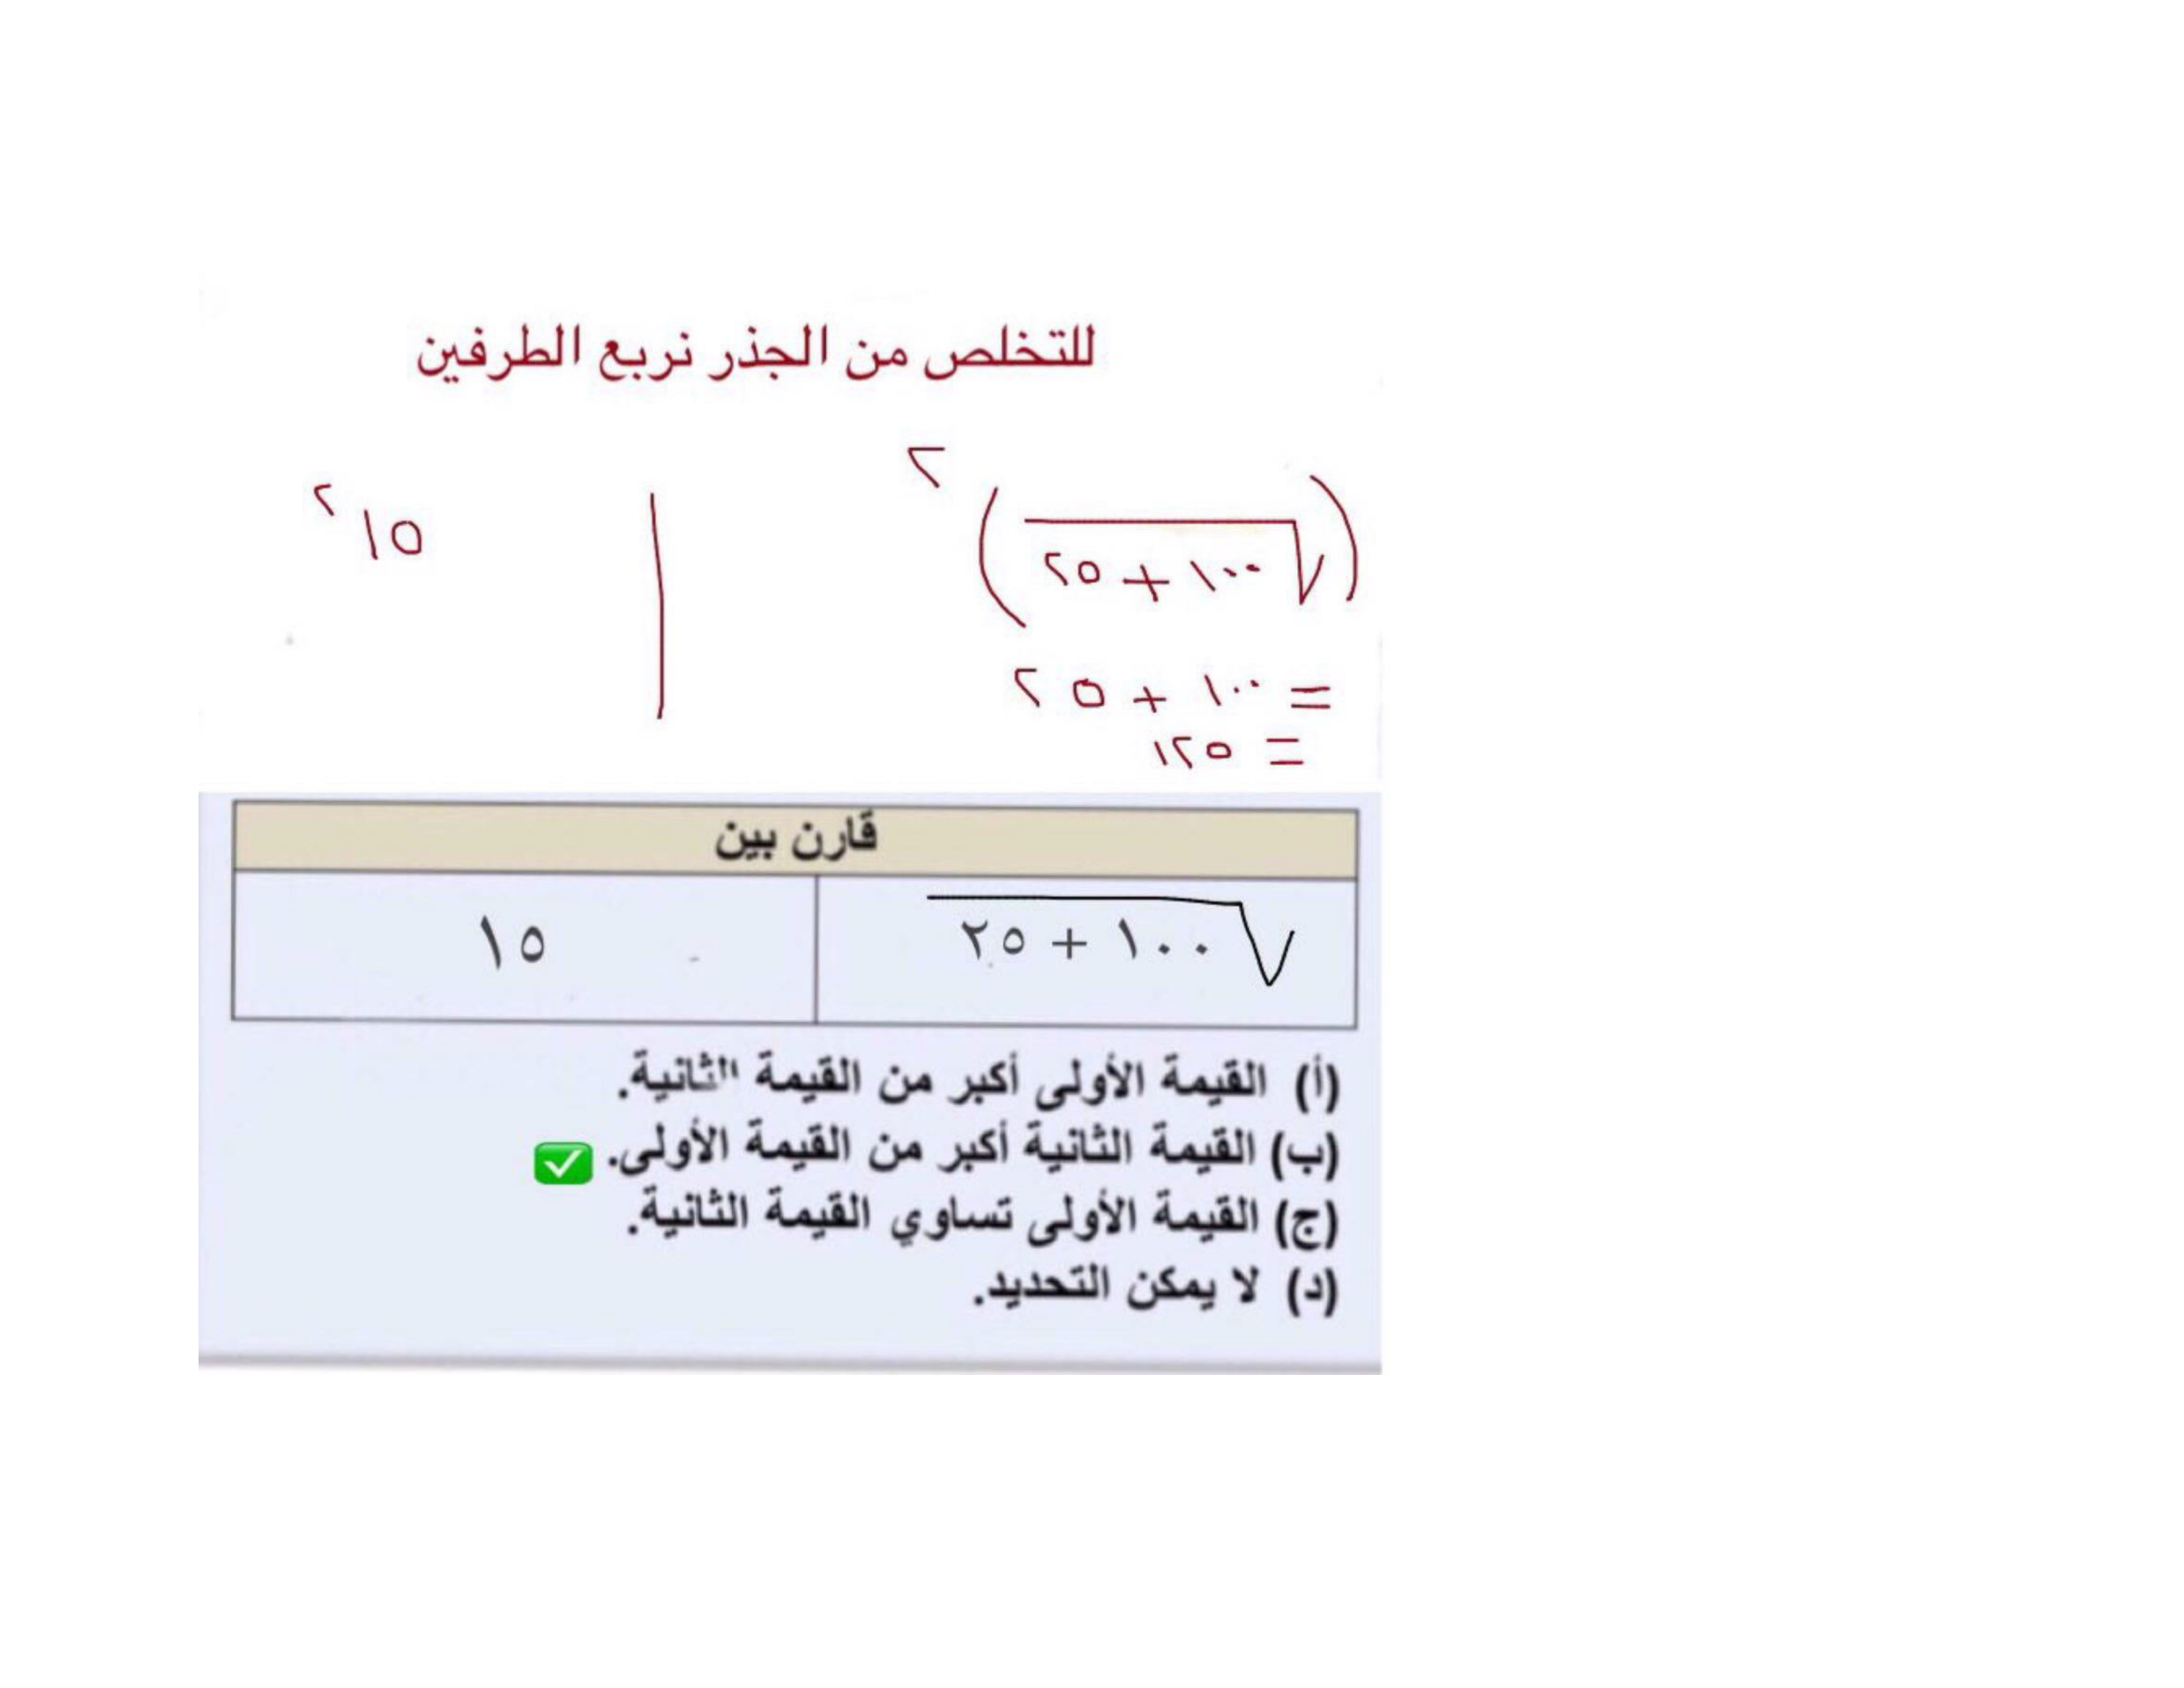 للتخلص من الجذر نربع الطرفين
(√١٠٠ + ٢٥)٢ | ١٥٢
= ١٠٠ + ٢٥
= ١٢٥
قارن بين
√١٠٠ + ٢٥ ١٥
(أ) القيمة الأولى أكبر من القيمة الثانية.
(ب) القيمة الثانية أكبر من القيمة الأولى. ✅
(ج) القيمة الأولى تساوي القيمة الثانية.
(د) لا يمكن التحديد.